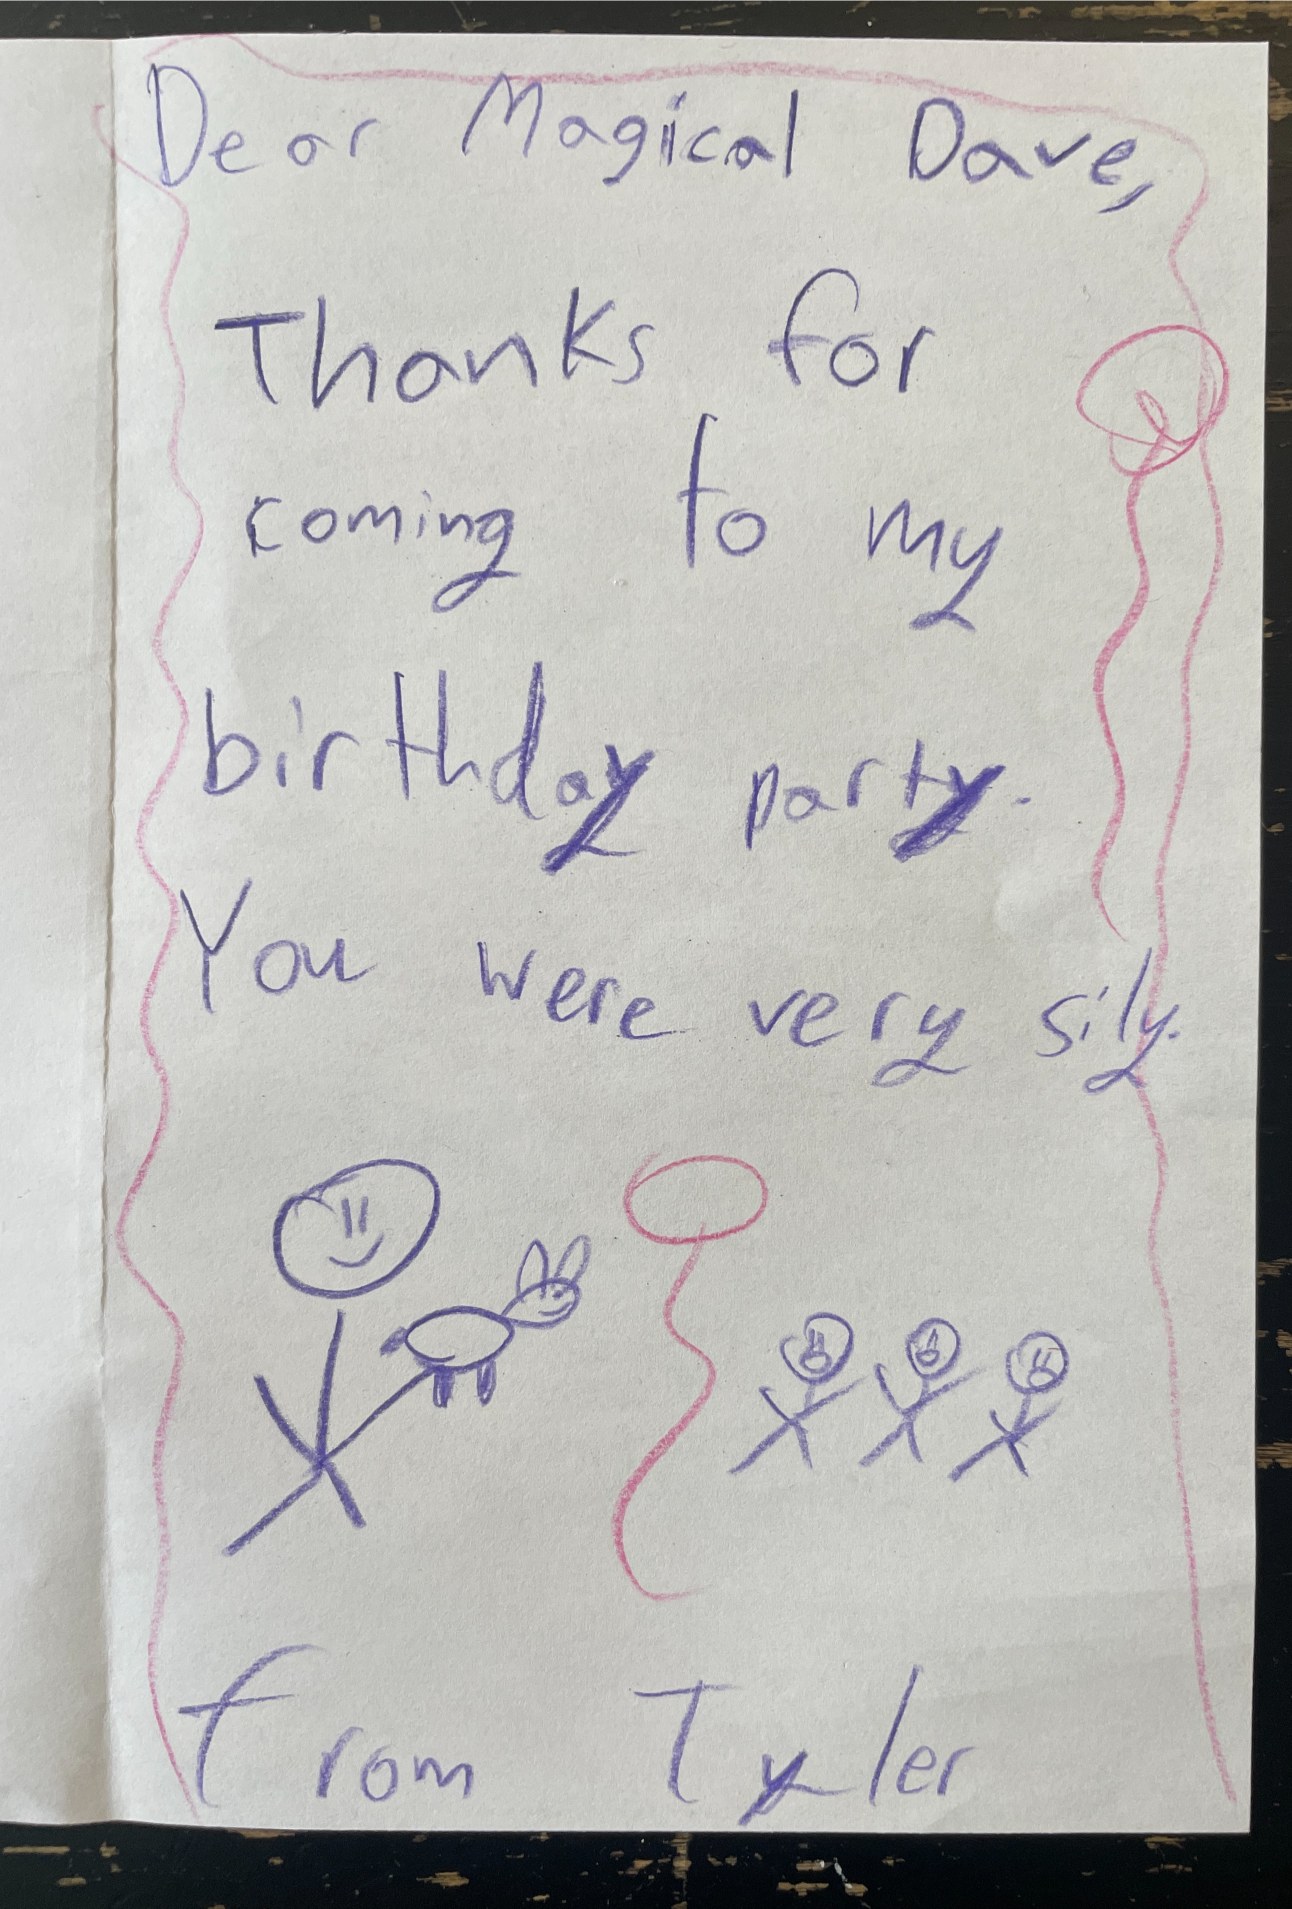 Dear Magical Dave,
Thanks for
coming to my
birthday party.
You were very sily.
from Tyler